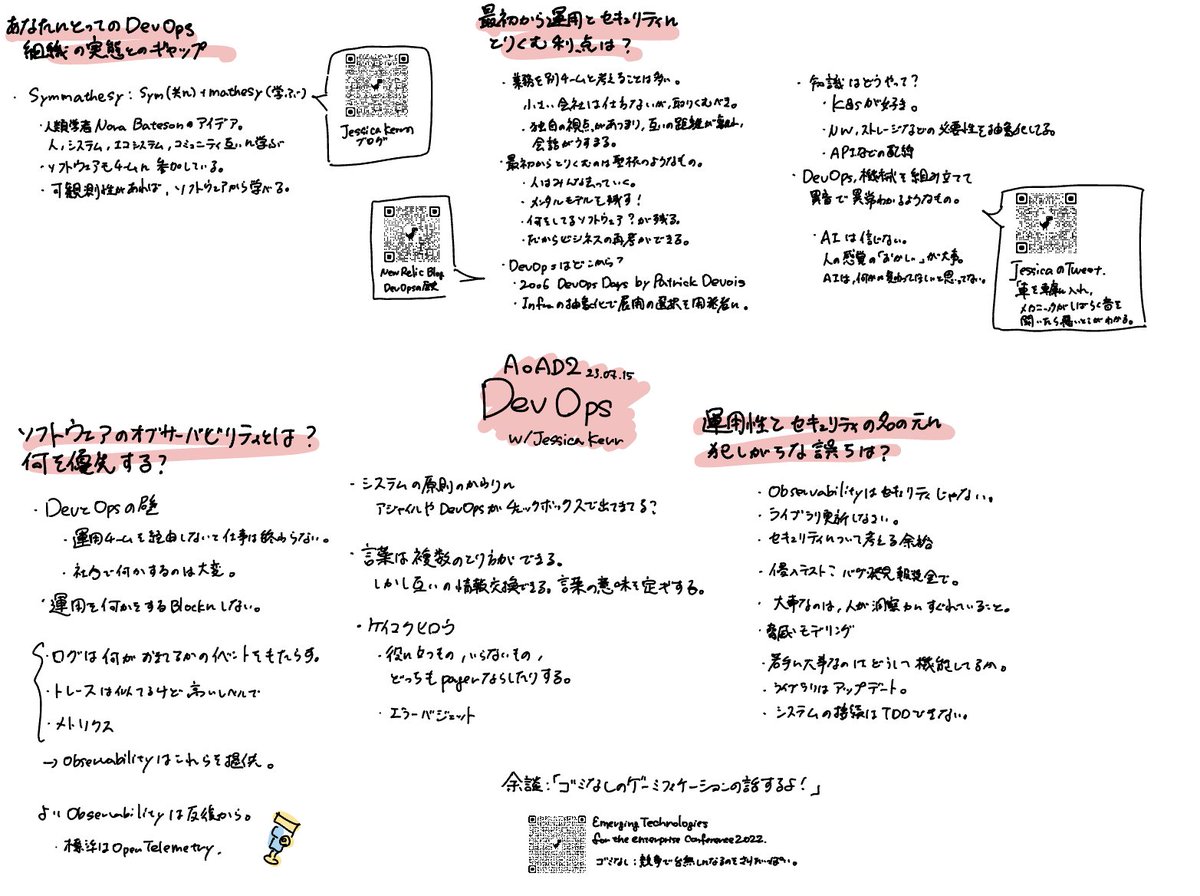 あなたにとってのDevOps
組織の実態とのギャップ
・Symmathesy: Sym(共に)+mathesy(学ぶ)
・人類学者Nora Batesonのアイデア。
人,システム,エコシステム,コミュニティ互いに学ぶ
・ソフトウェアもチームに参加している。
・可観測性があれば,ソフトウェアから学べる。
Jessica Kerr
ブログ
最初から運用とセキュリティに
とりくむ利点は?
・業務を別チームと考えることは多い。
小さい会社は仕方ないが,取りくむべき。
・独自の視点があつまり,互いの距離が
会話がうすまる。
・最初からとりくむのは聖杯のようなもの。
・人はみんな去っていく。
・メンタルモデルを残す!
・何をしてるソフトウェア?が残る。
・だからビジネスの再考ができる。
・DevOpsはどこから?
・2006 DevOps Days by Patrick Devois
・Infraの抽象化で展開の選択を開発者に。
New Relic Blog
DevOpsの歴史
・知識はどうやって?
・K8sが好き。
・NW,ストレージなどの必要性を抽象化してる。
・APIなどの配線
・DevOps,機械を組み立てて
異音で異常わかるようなもの。
・AIは信じない。
人の感覚の「おかしい」が大事。
AIは,何かが変わってほしいと思ってない。
JessicaのTweet.
「車を車庫に入れ,
メカニックがしばらく音を
聞いたら悪いとこがわかる。
AoAD2 23.07.15
DevOps
w/Jessica Kerr
ソフトウェアのオブザーバビリティとは?
何を優先する?
・DevとOpsの壁
・運用チームを経由しないと仕事は終わらない。
・社内で何かするのは大変。
・運用を何かをするBlockにしない。
・ログは何がおきてるかのイベントをもたらす。
・トレースは似てるけど高いレベルで
・メトリクス
→Observabilityはこれらを提供。
よいObservabilityは反復から。
・標準はOpenTelemetry.
・システムの原則のかわりに
アジャイルやDevOpsがチェックボックスで出てきてる?
・言葉は複数のとり方ができる。
しかし互いの情報交換できる。言葉の意味を定ぎする。
・ケイコクヒロウ
・役に立つもの,いらないもの,
どっちもpagerならしたりする。
・エラーバジェット
運用性とセキュリティの名の元に
犯しがちな誤ちは?
・Observabilityはセキュリティじゃない。
・ライブラリ更新しなさい。
・セキュリティについて考える余裕
・侵入テスト:バグ発見報奨金で。
・大事なのは,人が洞察力にすぐれていること。
・脅威モデリング
・若手に大事なのはどうして機能してるか。
・ライブラリはアップデート。
・システムの持続はTDDできない。
余談:「ゴミなしのゲーミフィケーションの話するよ!」
Emerging Technologies
for the enterprise Conference 2022.